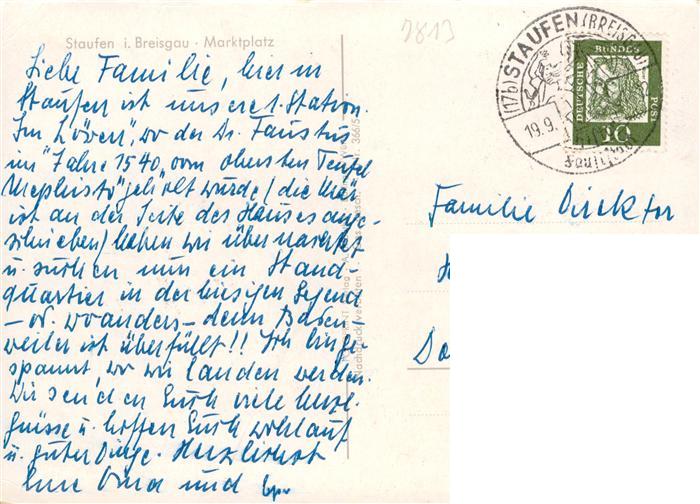 7813
Staufen i. Breisgau · Marktplatz
Liebe Familie, hier in
Staufen ist unsere 1. Station.
Im "Löwen", wo der Dr. Faustus
im "Jahre 1540, vom obersten Teufel
Mephisto" geholt wurde (die Mär
ist an der Seite des Hauses ange-
schrieben) haben wir übernachtet
u. suchen nun ein Stand-
quartier in der hiesigen Gegend
- od. woanders - denn Baden-
weiler ist überfüllt!! Ich bin ge-
spannt, wo wir landen werden.
Wir senden Euch viele herzl.
Grüsse u. hoffen Euch wohlauf
u. guter Dinge. Herzlichst
Eure Oma und
(17b) STAUFEN (BREISGAU)
19.9.
DEUTSCHE BUNDESPOST
10
Familie Direktor